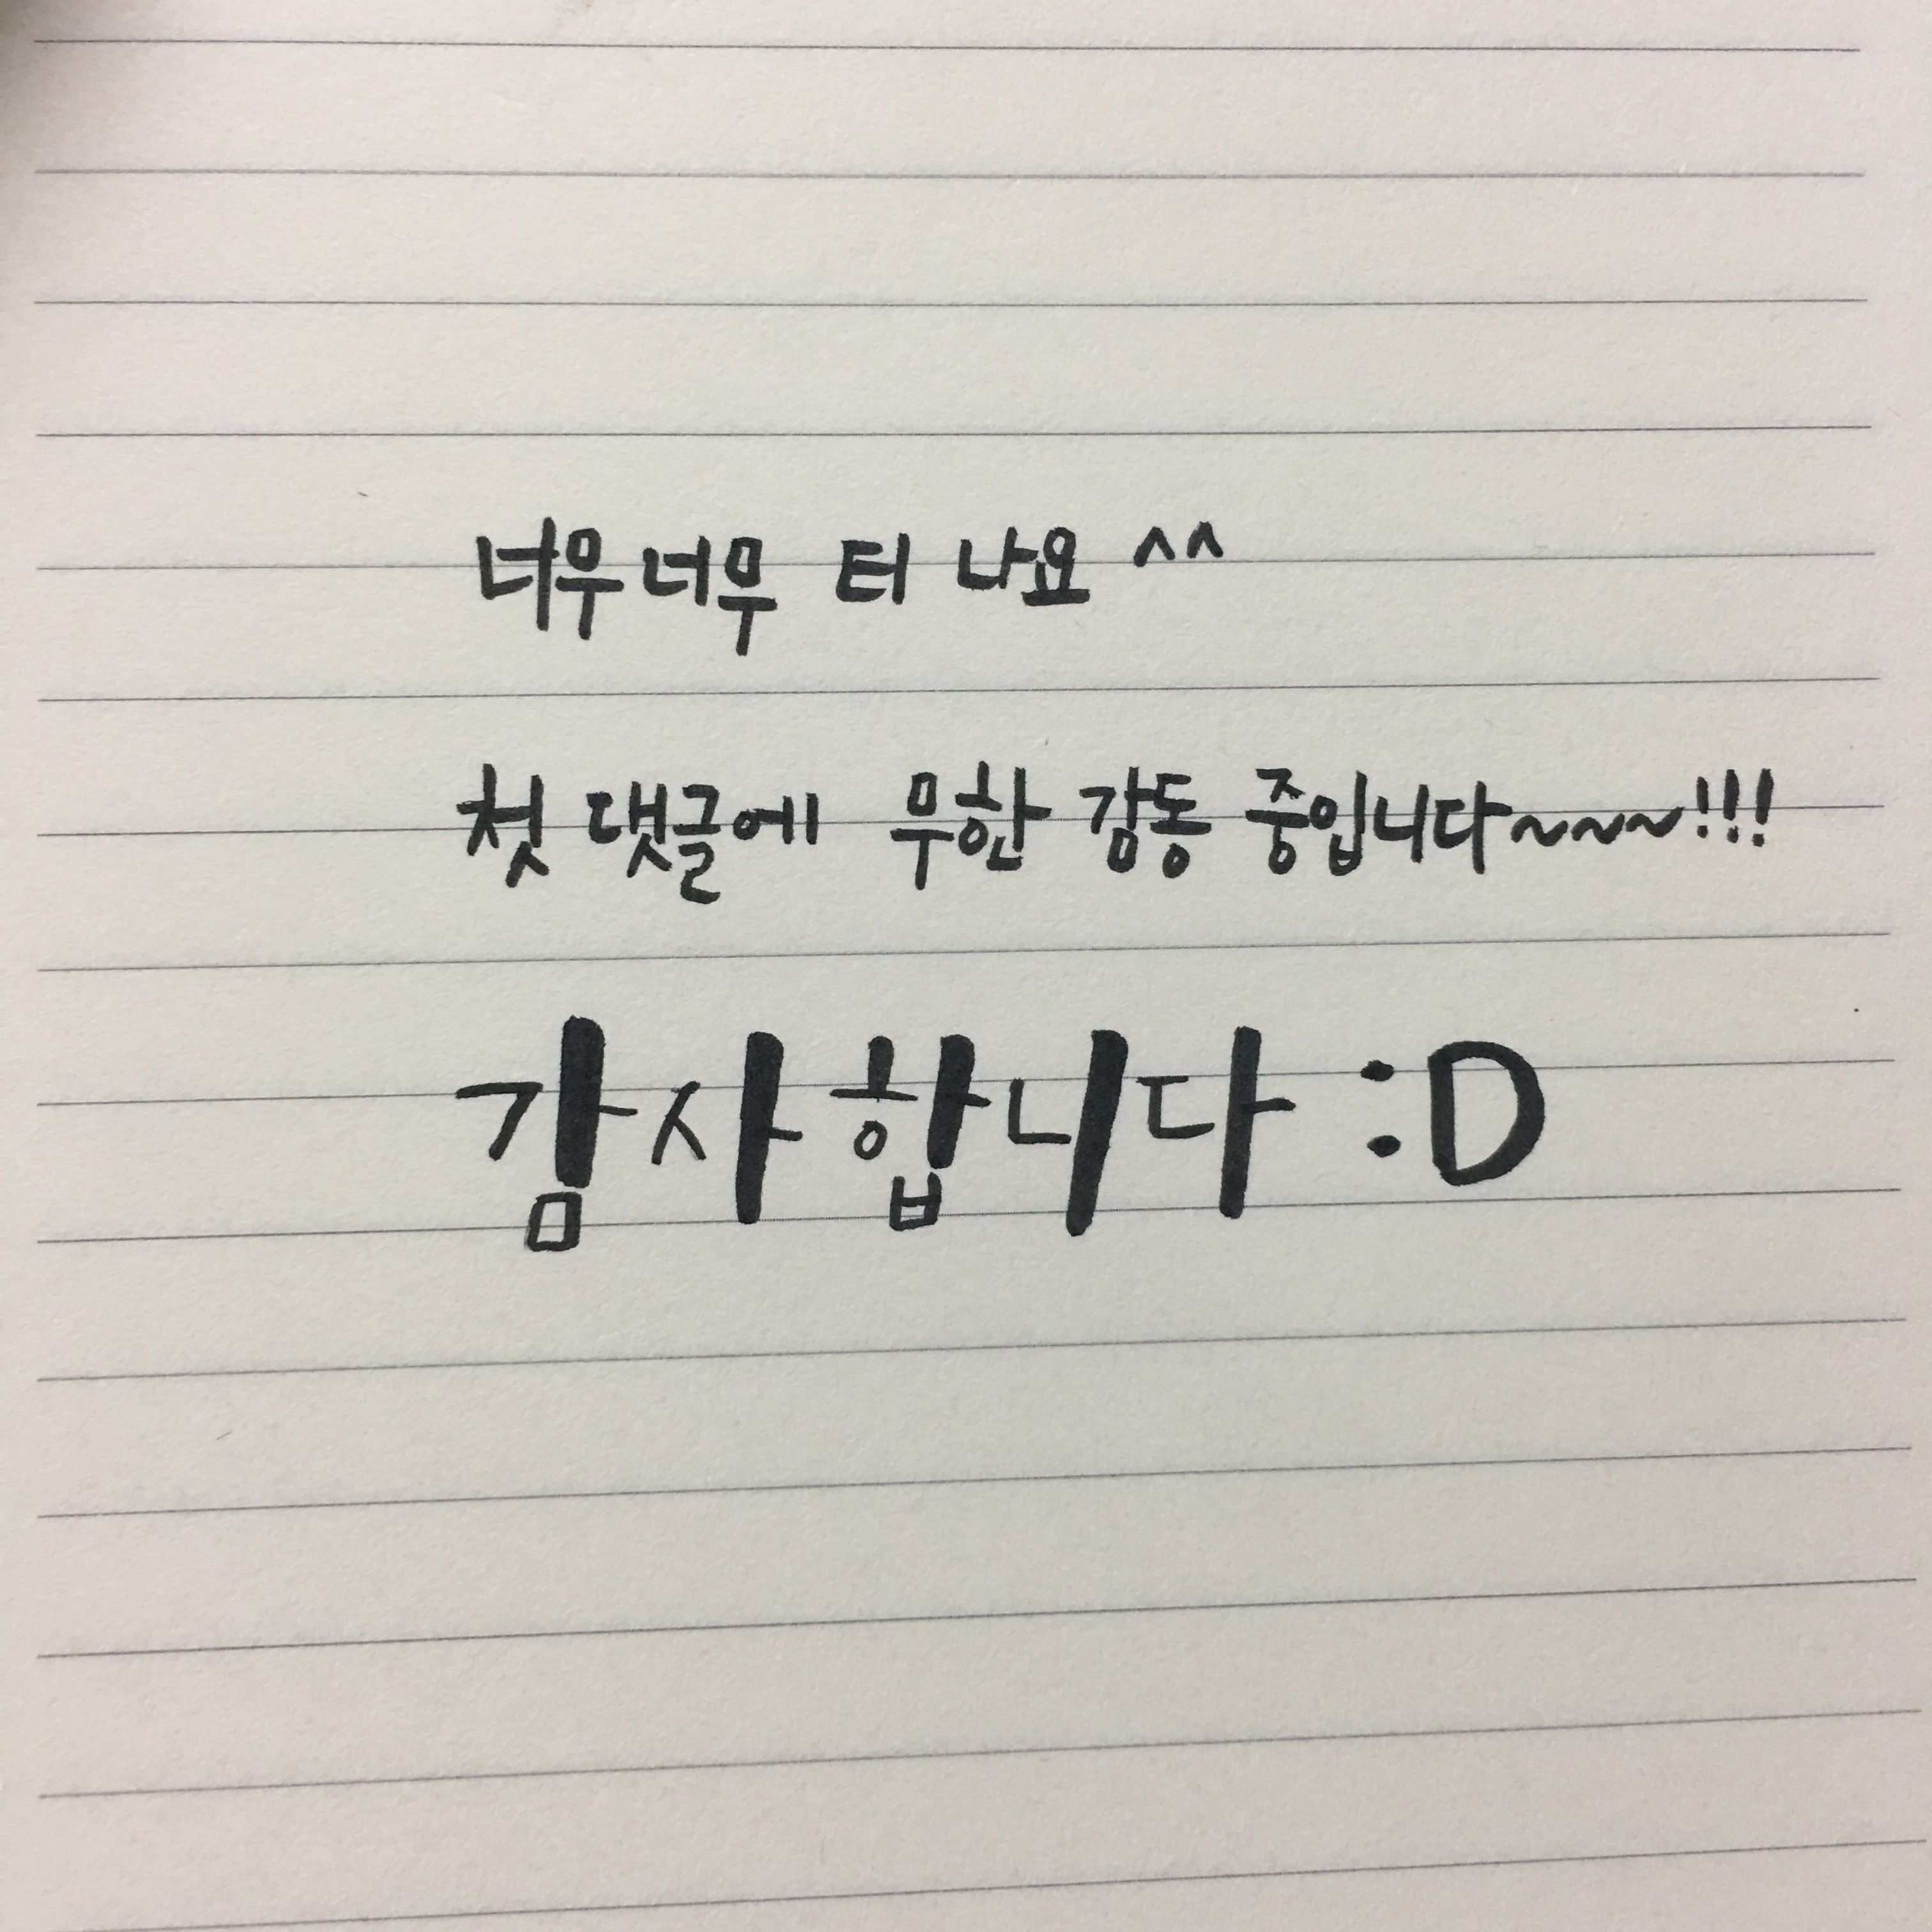 너무너무 티 나요 ^^
첫 댓글에 무한 감동 중입니다~~~!!!
감사합니다 :D